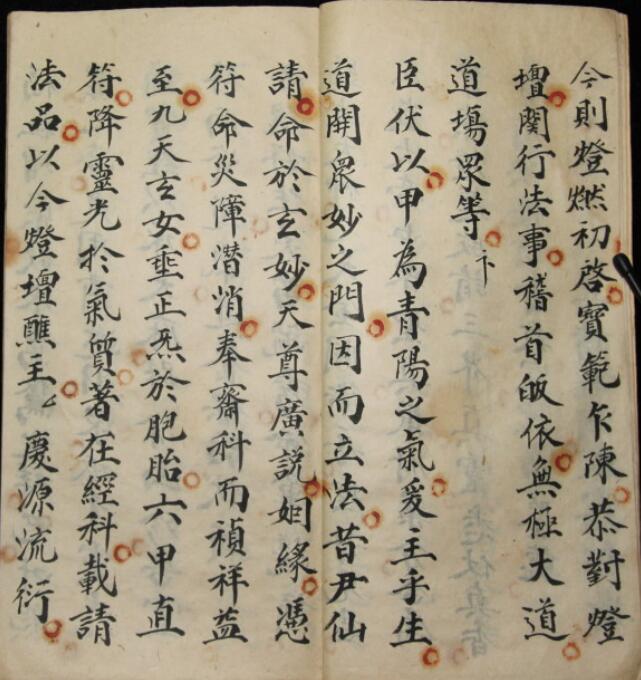 今則燈燃初啓寶範乍陳恭對燈
壇闋行法事稽首皈依無極大道
道場眾等
臣伏以甲為青陽之氣爰主乎生
道開眾妙之門因而立法昔尹仙
請命於玄妙天尊廣說因緣憑
符命災障潛消奉齋科而禎祥益
至九天玄女垂正炁於胞胎六甲直
符降靈光扵氣質著在經科載請
法品以今燈壇醮主 慶源流衍